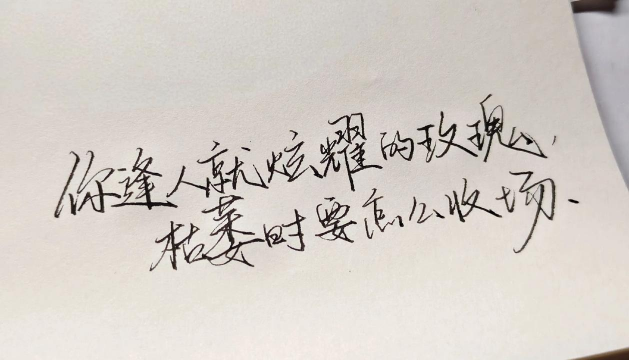 你逢人就炫耀的玫瑰
枯萎时要怎么收场、